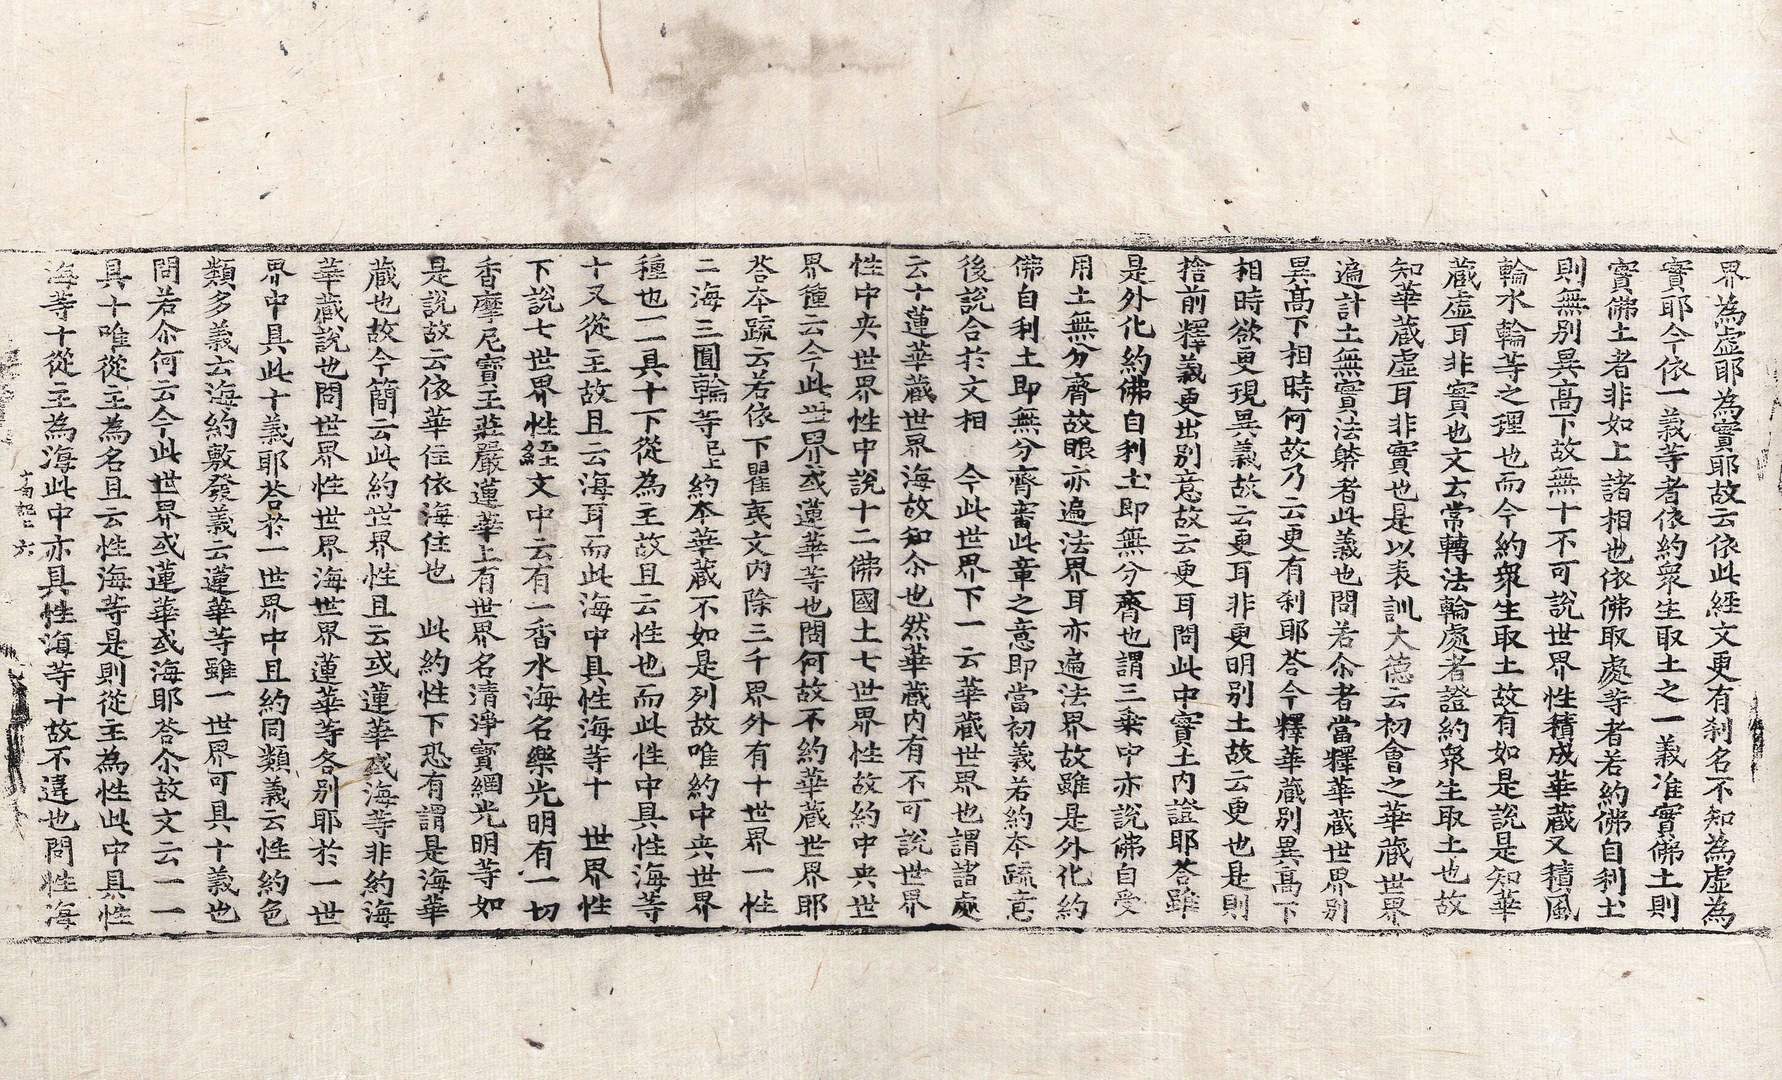 界為虛耶為實耶故云依此經文更有刹名不知為虛為
實耶今依一義等者依約衆生取土之一義准實佛土則
實佛土者非如上諸相也依佛取處等者若約佛自利土
則無別異高下故無十不可說世界性積成華蔵又積風
輪水輪等之理也而今約衆生取土故有如是說是知華
蔵虛耳非實也文云常轉法輪處者證約衆生取土也故
知華蔵虛耳非實也是以表訓大德云初會之華蔵世界
遍計土無實法躰者此義也問若尒者當釋華蔵世界別
異高下相時何故乃云更有刹耶荅今釋華蔵別異高下
相時欲更現異義故云更耳非更明別土故云更也是則
捨前釋義更出別意故云更耳問此中實土内證耶荅雖
是外化約佛自利土即無分齊也謂三乗中亦說佛自受
用土無分齊故眼亦遍法界耳亦遍法界故雖是外化約
佛自利土即無分齊畜此章之意即當初義若約本䟽意
後說合於文相 今此世界下一云華蔵世界也謂諸處
云十蓮華蔵世界海故知尒也然華蔵内有不可說世界
性中央世界性中說十二佛國土七世界性故約中央世
界種云今此世界或蓮華等也問何故不約華蔵世界耶
荅本䟽云若依下瞿夷文内除三千界外有十世界一性
二海三圓輪等已上約本華蔵不如是列故唯約中央世界
種也一一具十下從為主故且云性也而此性中具性海等
十又從主故且云海耳而此海中具性海等十 世界性
下說七世界性經文中云有一香水海名樂光明有一切
香摩尼寶王莊嚴蓮華上有世界名清淨寶網光明等如
是說故云依華住依海住也 此約性下恐有謂是海華
蔵也故今簡云此約世界性且云或蓮華或海等非約海
華蔵說也問世界性世界海世界蓮華等各別耶於一世
界中具此十義耶荅於一世界中且約同類義云性約色
類多義云海約敷發義云蓮華等雖一世界可具十義也
問若尒何云今此世界或蓮華或海耶荅尒故文云一一
具十唯從主為名且云性海等是則從主為性此中具性
海等十從主為海此中亦具性海等十故不違也問性海